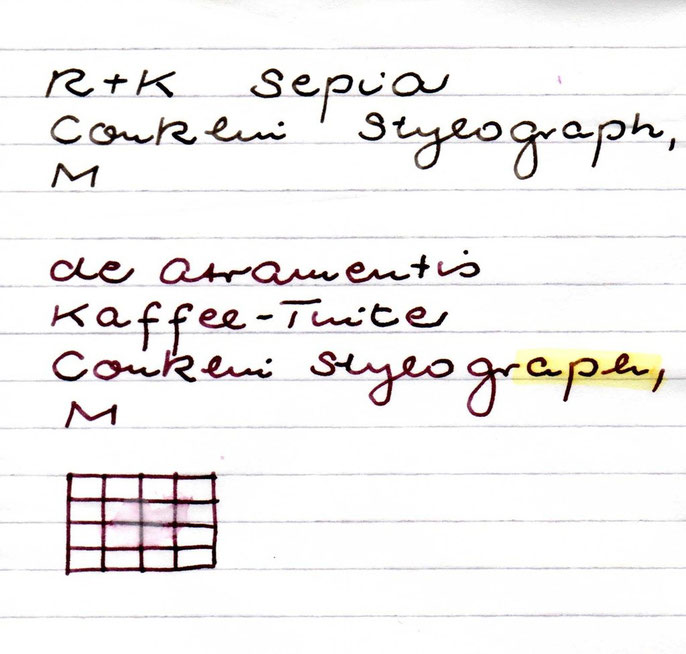 R+K Sepia
Conklin Stylograph,
M
de Atramentis
Kaffee-Tinte
Conklin Stylograph,
M